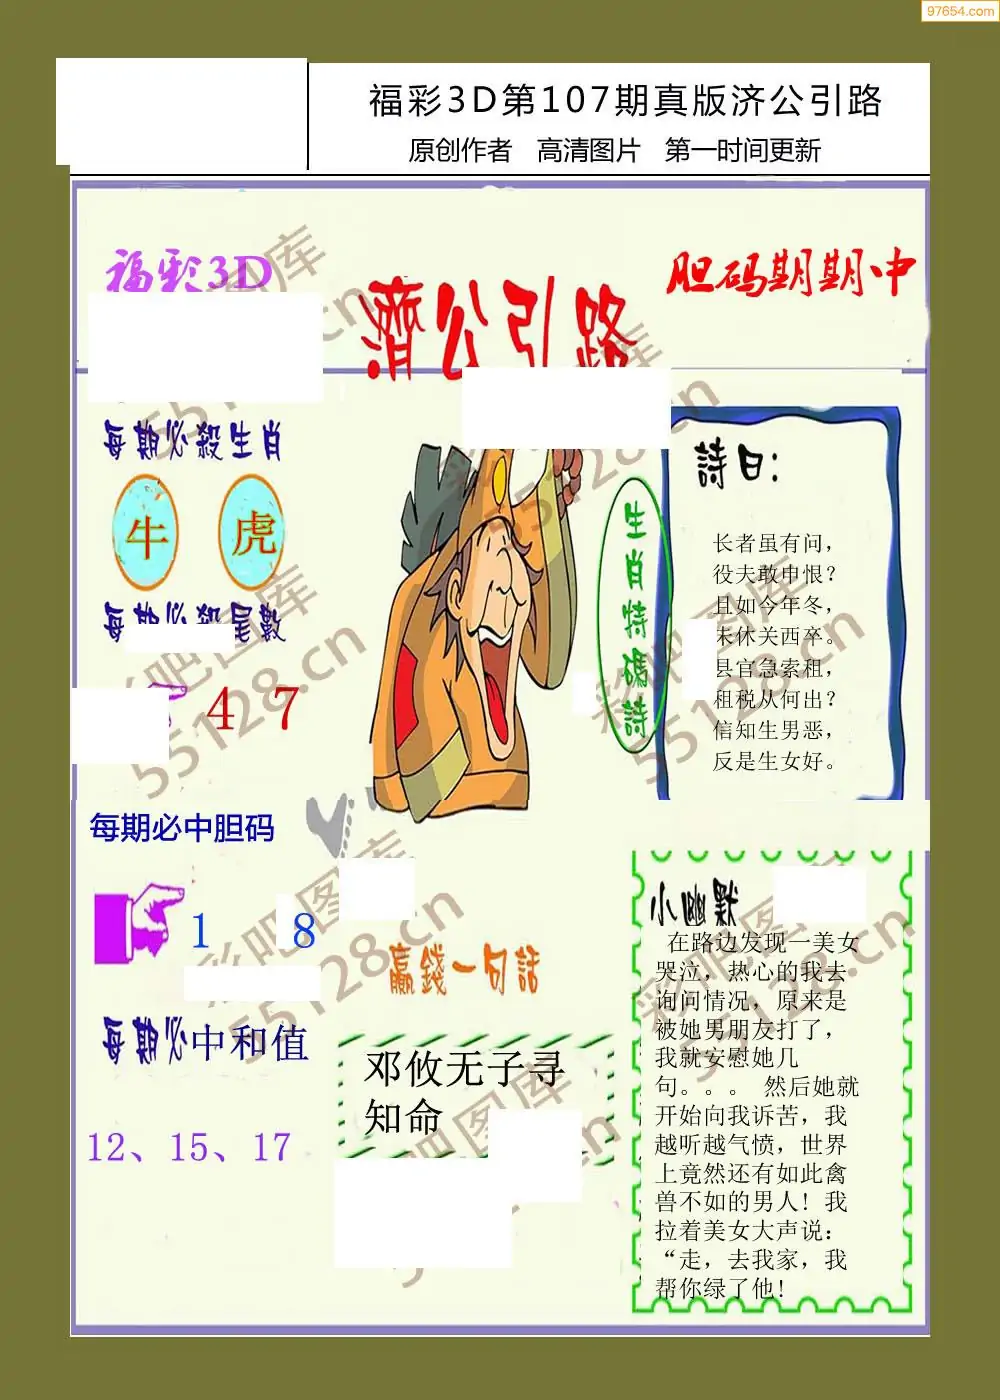 97654.com
福彩3D第107期真版济公引路
原创作者 高清图片 第一时间更新
福彩3D
濟公引路
胆码期期中
每期必殺生肖
牛 虎
每期必殺尾數
4 7
生肖特碼詩
詩曰：
长者虽有问，
役夫敢申恨？
且如今年冬，
未休关西卒。
县官急索租，
租税从何出？
信知生男恶，
反是生女好。
每期必中胆码
1 8
每期必中和值
12、15、17
赢錢一句話
邓攸无子寻
知命
小幽默
在路边发现一美女
哭泣，热心的我去
询问情况，原来是
被她男朋友打了，
我就安慰她几
句。。。 然后她就
开始向我诉苦，我
越听越气愤，世界
上竟然还有如此禽
兽不如的男人！我
拉着美女大声说：
“走，去我家，我
帮你绿了他！
彩吧图库
55128.cn